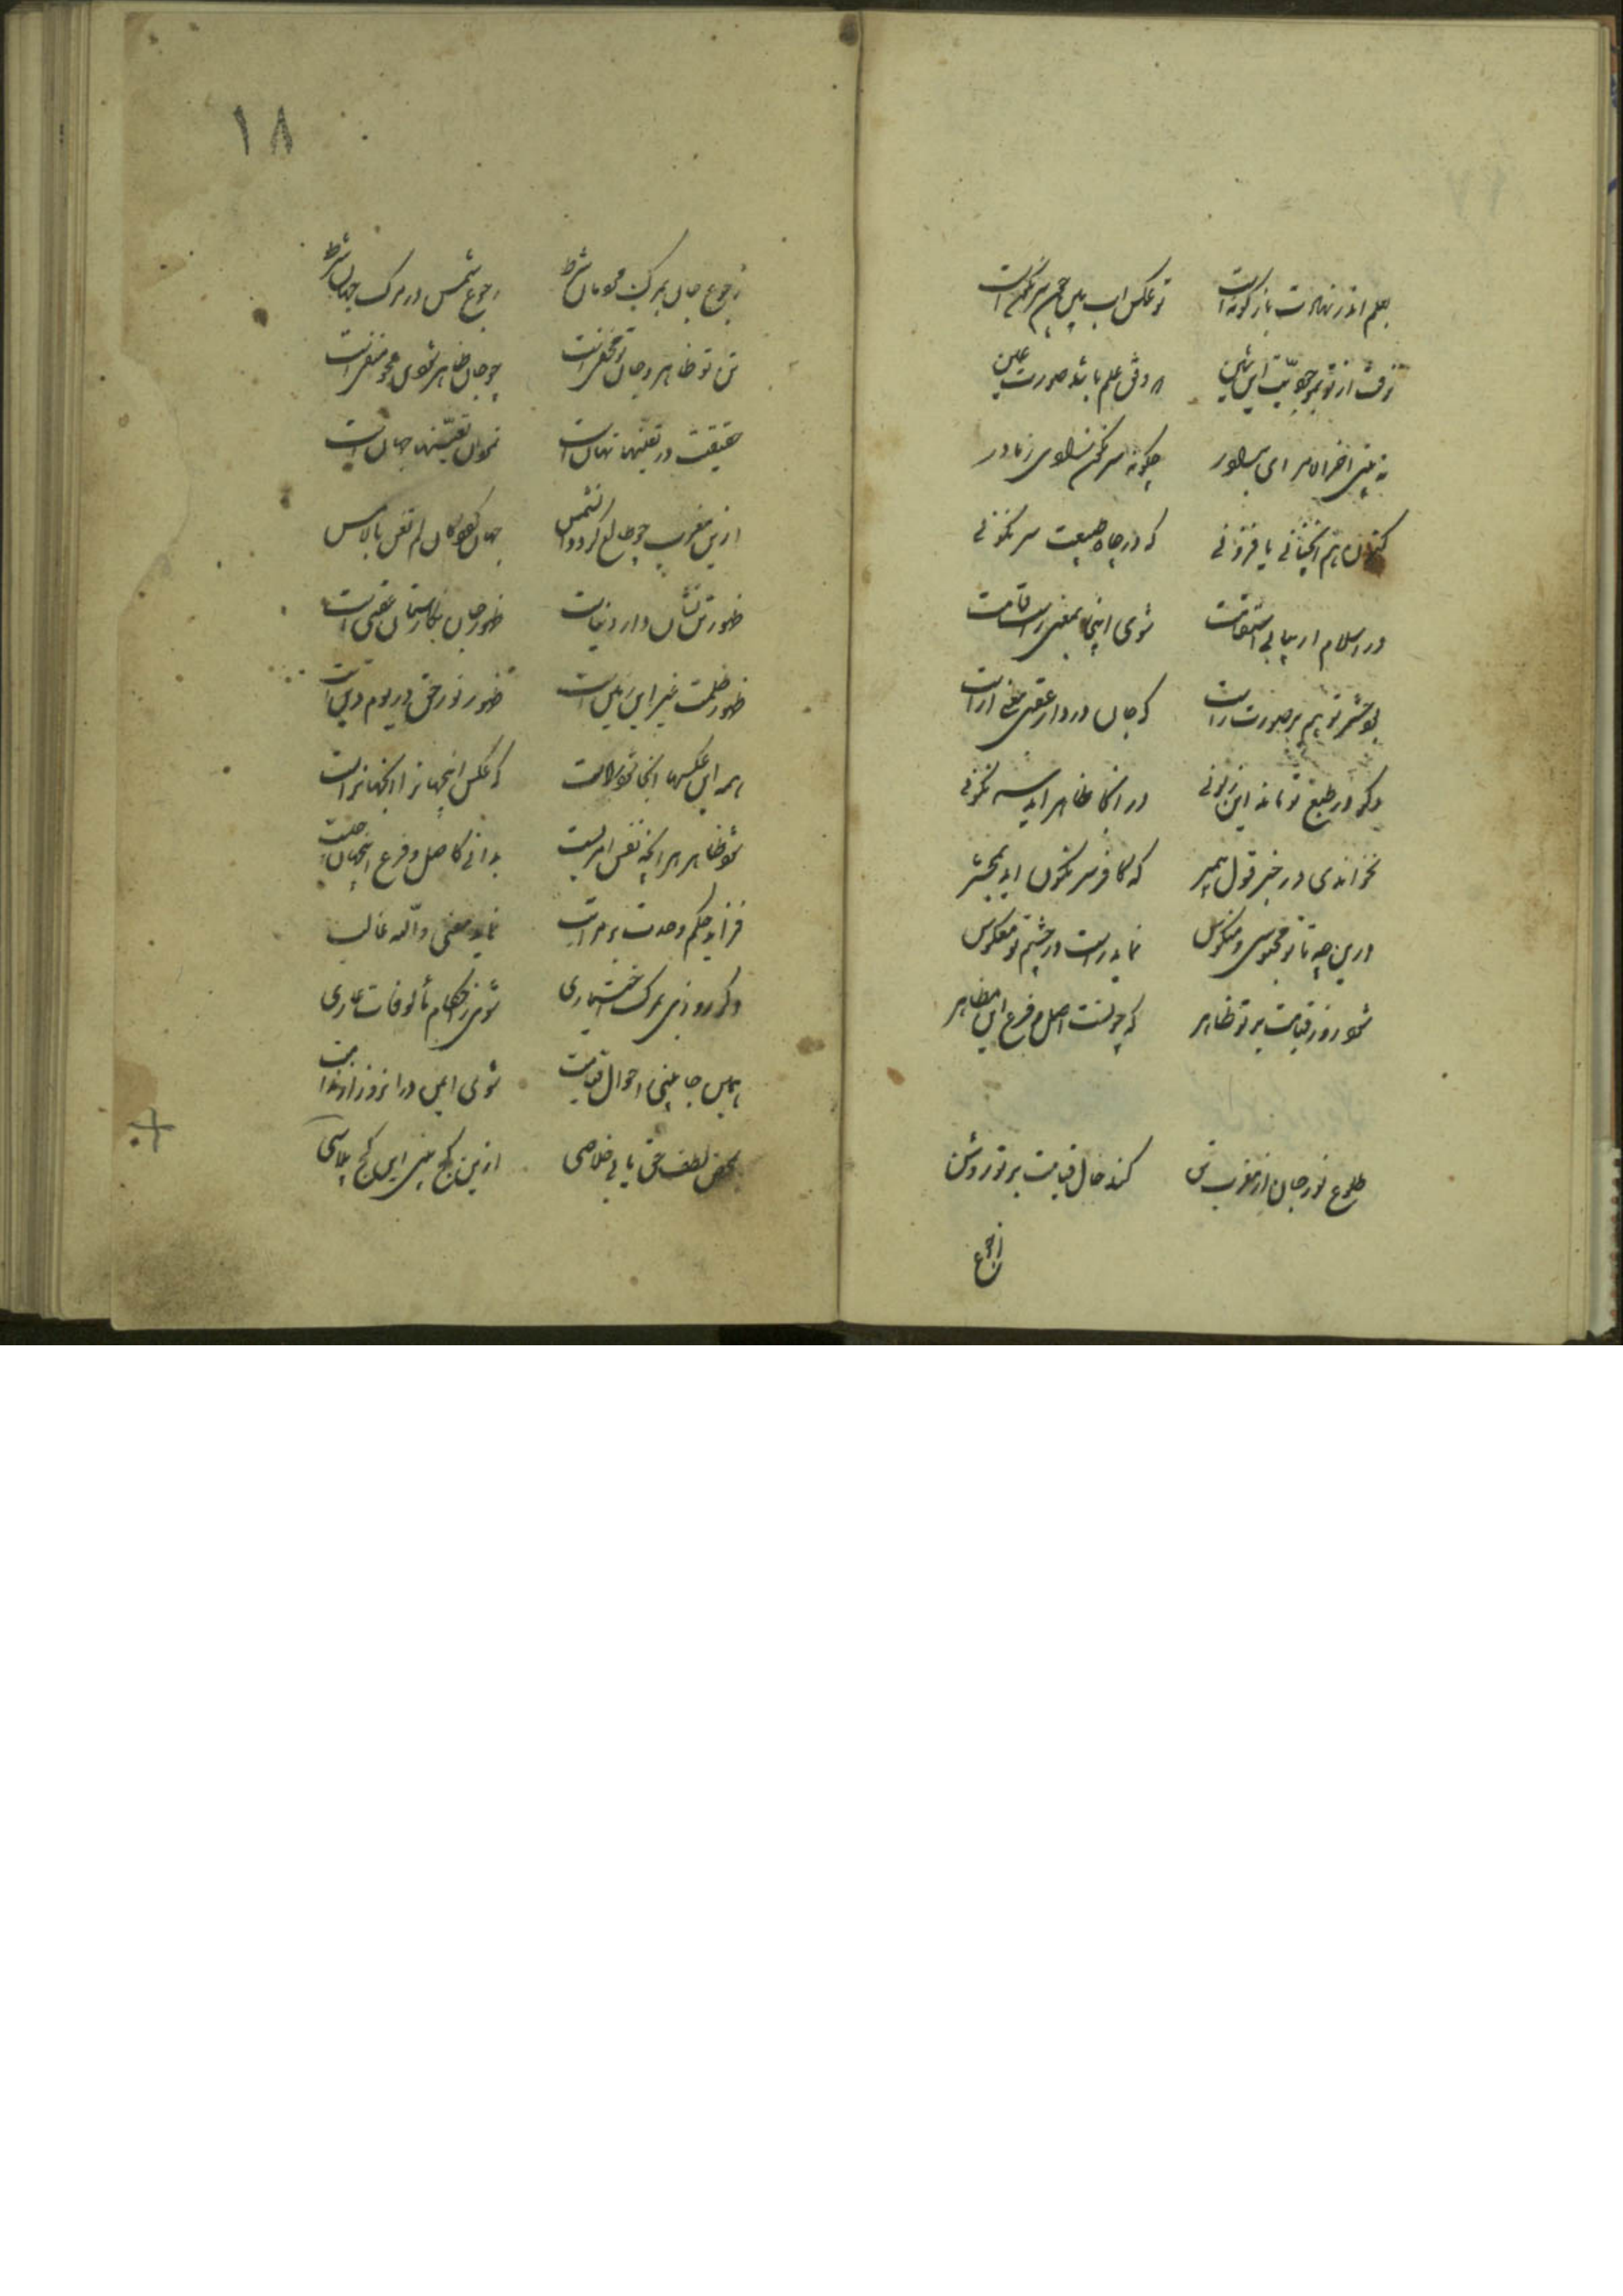 بعلم اندر نهادت باژگونه است تو عکس اب بین چون سرنگونست
نه بینی اخر ای مرای برادر چگونه سرنگون زادی ز مادر
کنون هم انچنانی یا فزونی که در چاه طبیعت سرنگونی
در اسلام ار بیابی استقامت شوی اینجا بمعنی راست قامت
بود حشر تو هم بر صورت راست که جان در دار عقبی معنی اراست
وگر در طبع تو ماند این زبونی در انجا ظاهر اید سرنگونی
نخواندی در خبر قول پیمبر که کافر سرنگون اید بمحشر
درین چه تا تو محبوسی و منکوس نماید راست در چشم تو معکوس
شود روز قیامت بر تو ظاهر که چونست اصل و فرع این مظاهر
طلوع نور جان از مغرب تن کند حال قیامت بر تو روشن
رجوع
۱۸
رجوع جان بمرکت شرط رجوع شمس در مرک جهان شرط
تن تو ظاهر و جان تو مخفی است چو جان ظاهر شود تن محو و منفی است
حقیقت در تعینها نهان است نمود تعینها جهان است
ازین مغرب چو طالع گردد الشمس جهان گوئی کان لم تغن بالامس
ظهور تن نشان دار دنیاست ظهور جان عقبی است
ظهور ظلمت غیر این این است ظهور نور حق در یوم دین است
همه این عکسها انجا شود راست که عکس اینجهانرا انجهانراست
شود ظاهر هر انچه نفس امریست بدانی کاصل و فرع اینجهان چیست
فزاید حکم وحدت بر مراتب نماید معنی والله غالب
وگر روزی بمرک اختیاری شوی زاحکام مألوفات عاری
همین جا بینی احوال قیامت شوی ایمن در انروز از ندامت
بمحض لطف حق یابی خلاصی ازین کج بینی این کج پلاسی